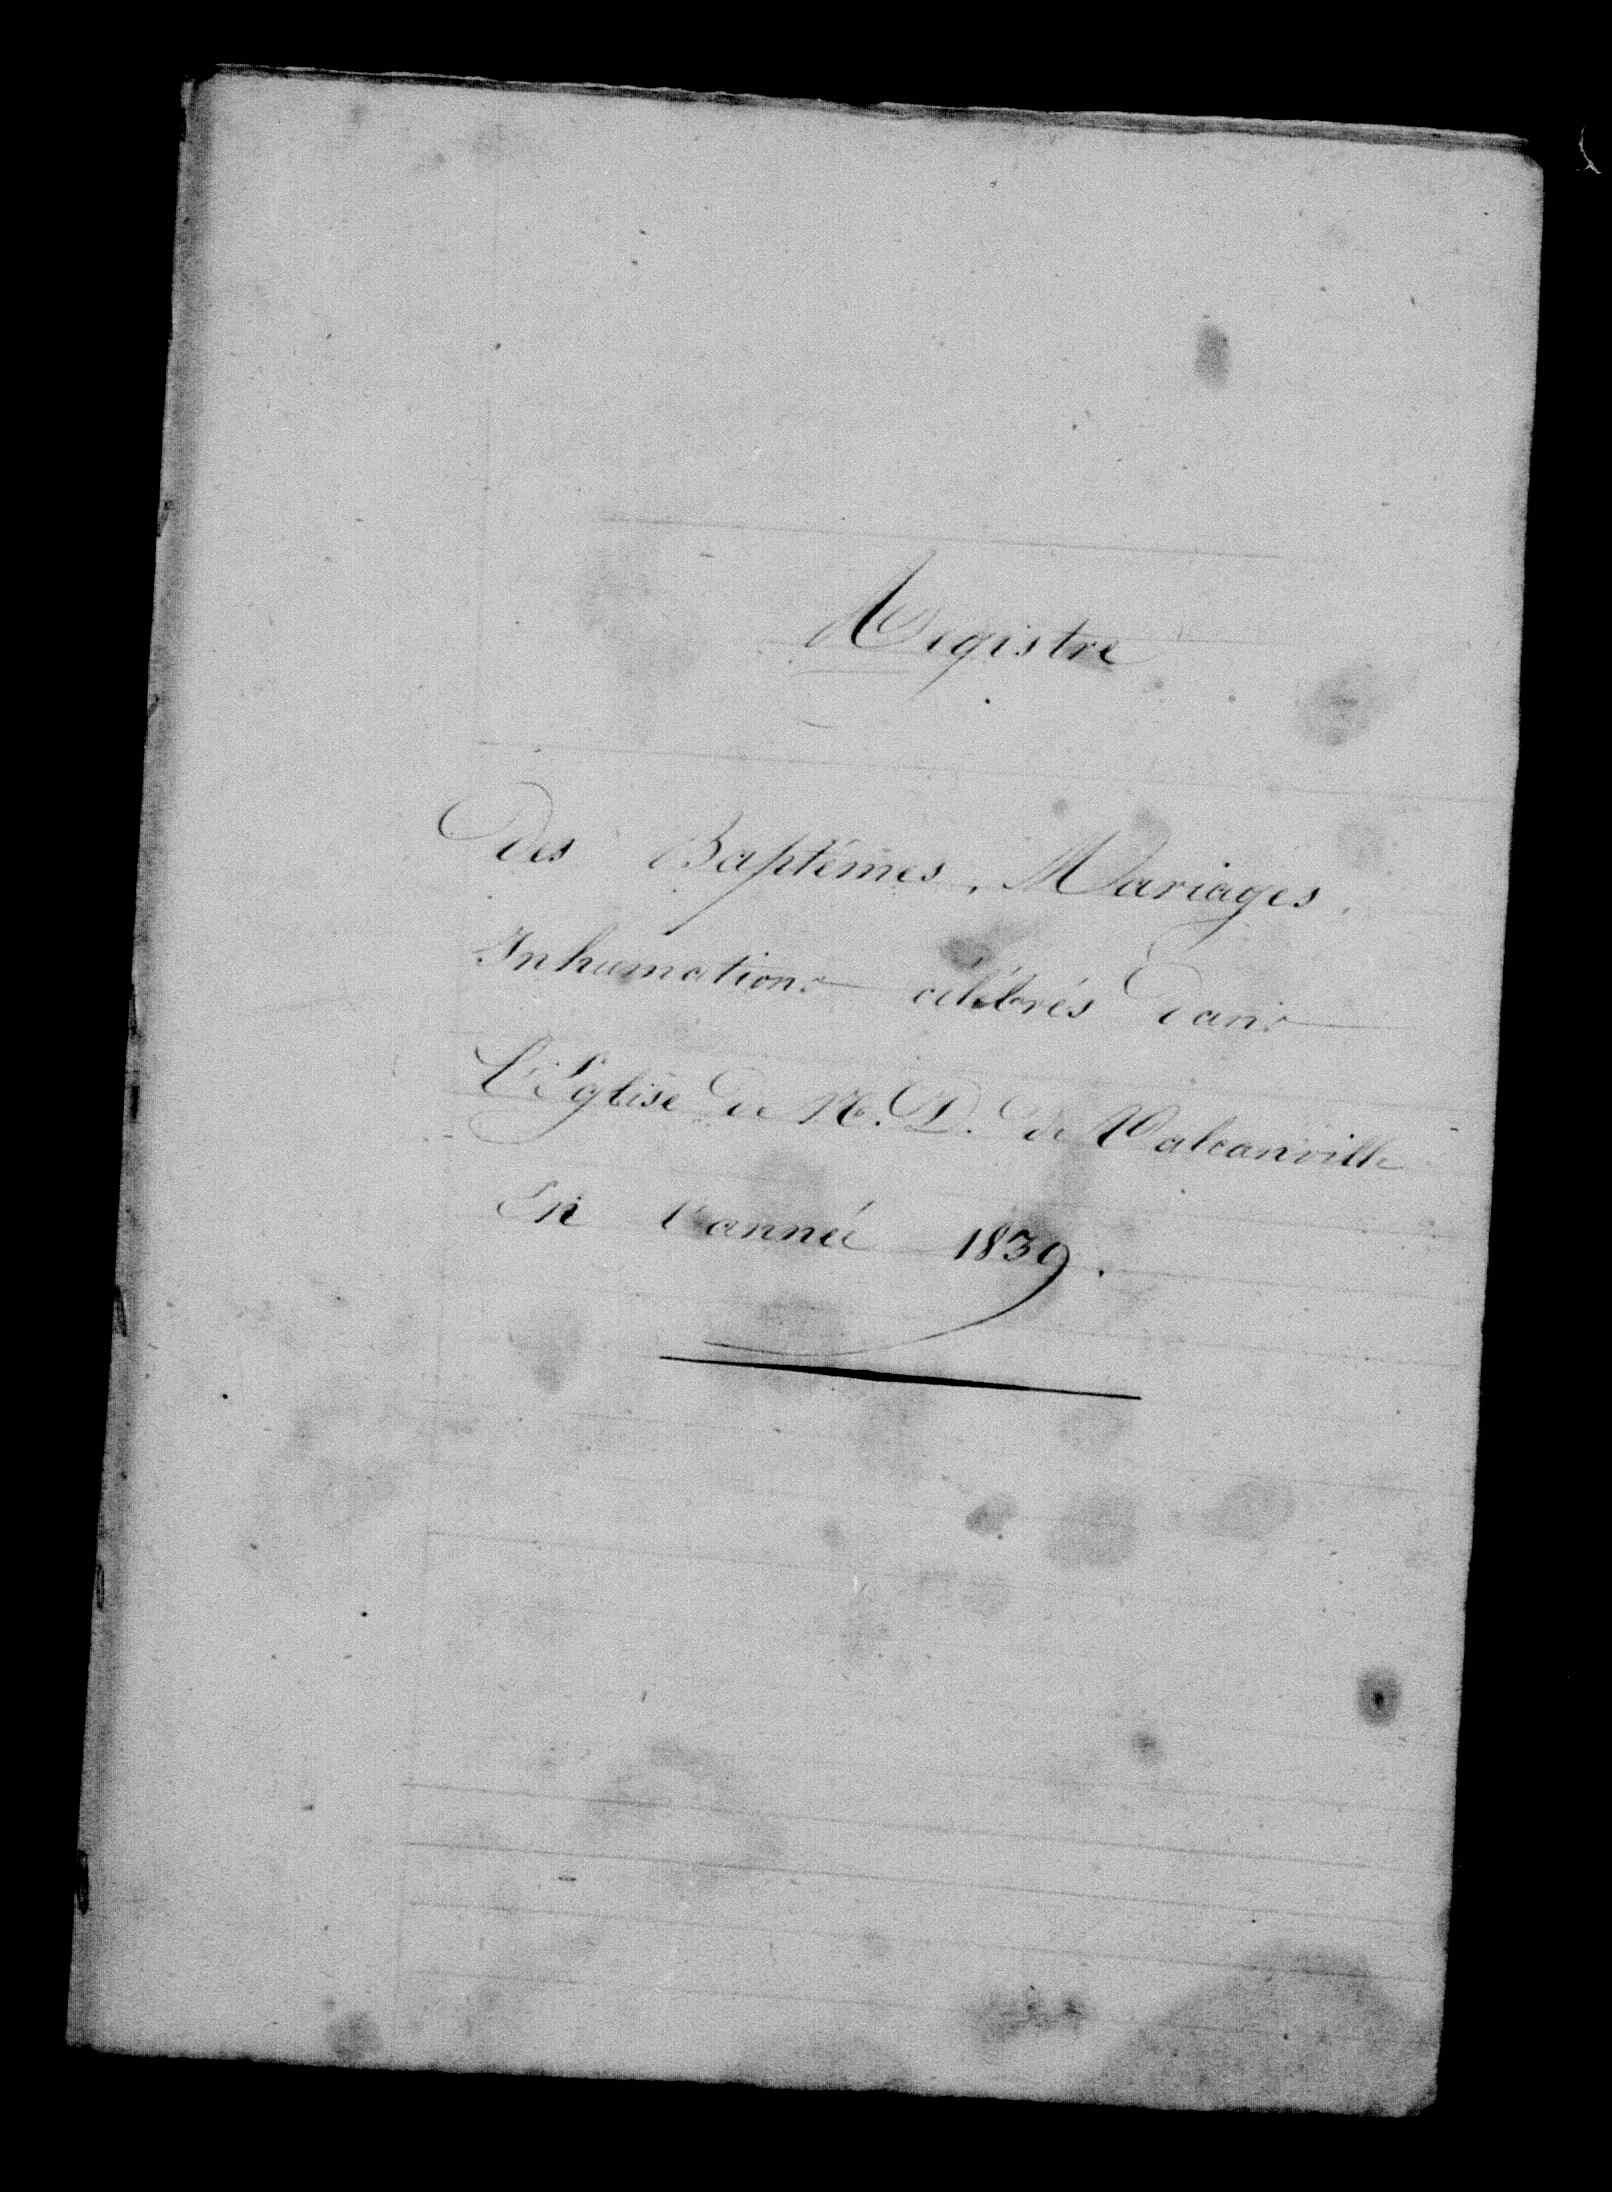 Registre
des Baptêmes, Mariages,
Inhumations célébrés dans
l'Eglise de N. D. de Valcanville
En l'année 1839.